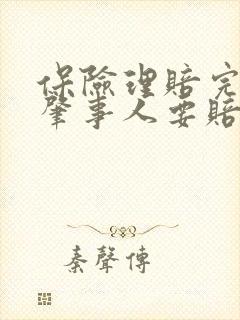 保險理賠完
肇事人要賠
秦聲傳